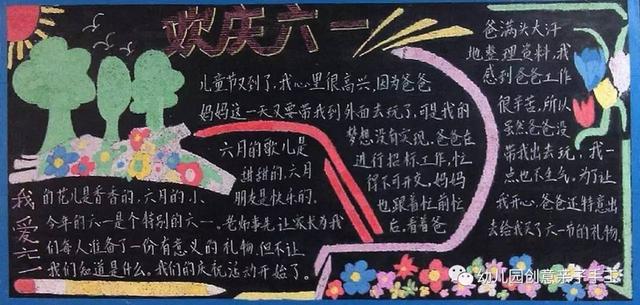 欢庆六一
儿童节又到了，我心里很高兴，因为爸爸
妈妈这一天又要带我到外面去玩了，可是我的
梦想没有实现，爸爸在
进行招标工作，忙
得不可开交，妈妈
也跟着忙前忙
后，看着爸
爸满头大汗
地整理资料，我
感到爸爸工作
很辛苦，所以
虽然爸爸没
带我出去玩，我一
点也不生气。为了让
我开心，爸爸还特意出
去给我买了六一节的礼物。
我爱六一
六月的歌儿是
甜甜的，六月
的花儿是香香的，六月的小
朋友是快乐的。
今年的六一是个特别的六一。老师事先让家长为我
们每人准备了一份有意义的礼物，但不让
我们知道是什么。我们的庆祝活动开始了。
幼儿园创意亲子手工